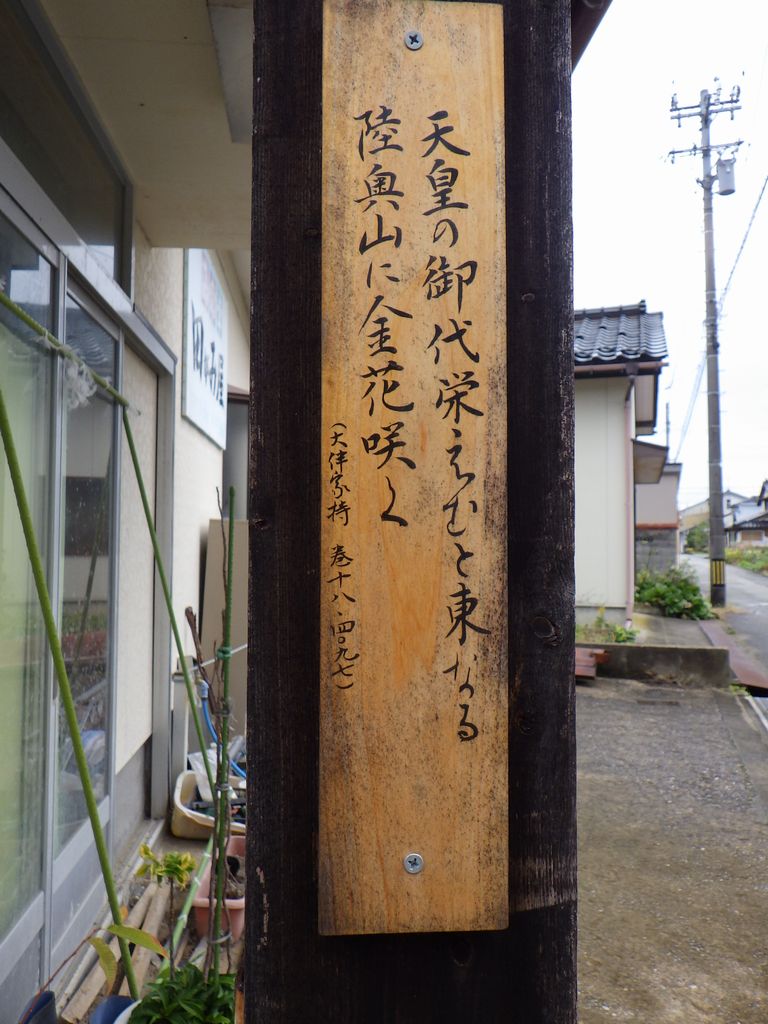 天皇の御代栄えむと東なる
陸奥山に金花咲く
(大伴家持 巻十八・四〇九七)